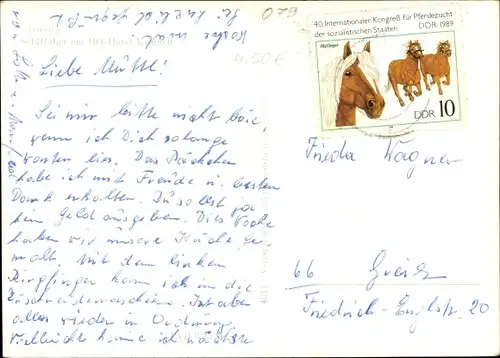 Liebe Mutti!
Sei mir bitte nicht böse,
wenn ich Dich so lange
warten lies. Das Päckchen
habe ich mit Freude u. besten
Dank erhalten. Du sollst ja
kein Geld ausgeben. Dies Woche
haben wir unsere Küche ge-
malt. Mit dem linken
Ringfinger kam ich in die
Ist aber
alles wieder in Ordnung.
Vielleicht komme ich nächste
079
4.50€
40. Internationaler Kongreß für Pferdezucht
der sozialistischen Staaten
DDR 1989
Haflinger
DDR 10
Frieda Wagner
66 Greiz
Friedrich-Engelsstr. 20